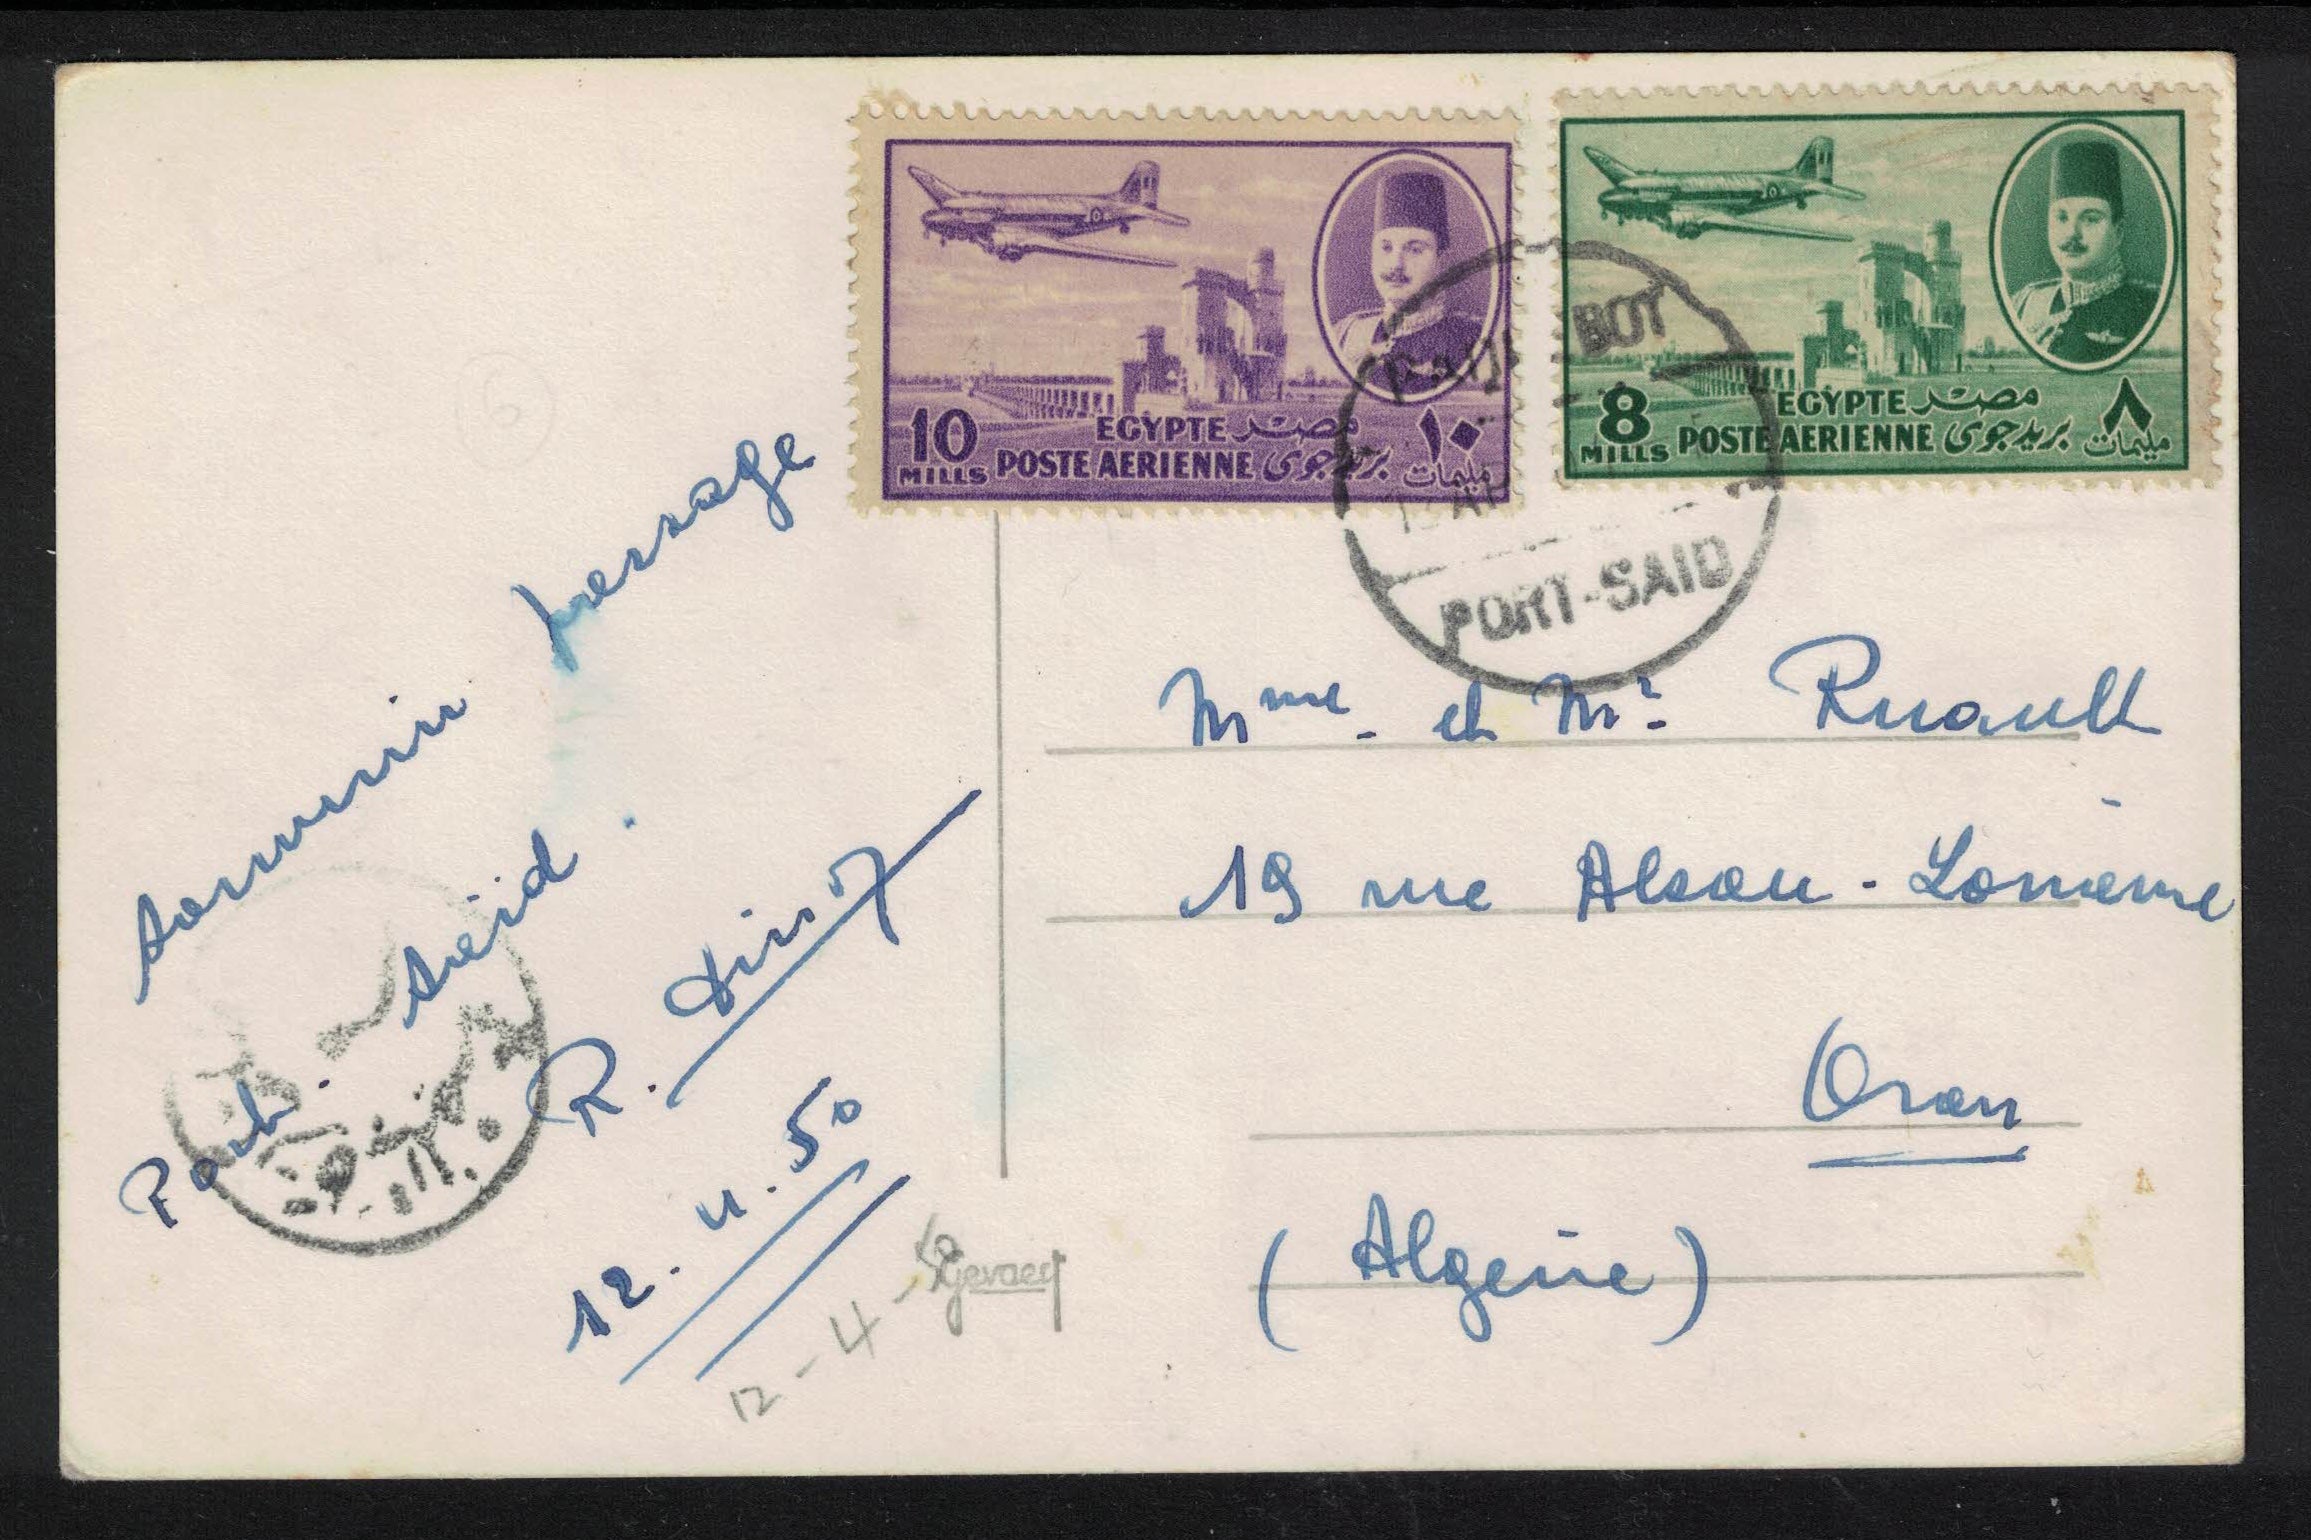 10 MILLS EGYPTE مصر ١٠ مليمات
POSTE AERIENNE بريد جوى
8 MILLS EGYPTE مصر ٨ مليمات
POSTE AERIENNE بريد جوى
PAQUEBOT
PORT-SAID
souvenir passage
Port. Saïd.
R.
12.4.50
12-4-50
Gevaert
Mme. et Mr. Ruault
19 rue Alsace-Lorraine
Oran
(Algérie)
6